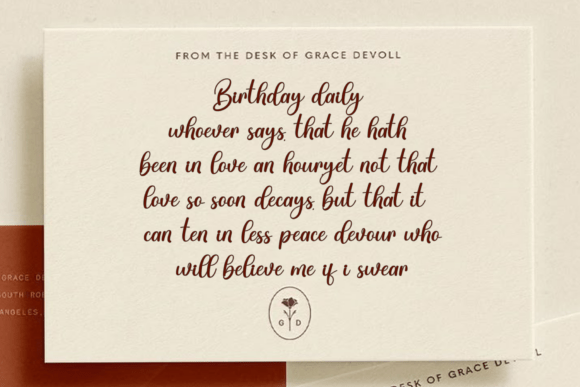 FROM THE DESK OF GRACE DEVOLL
Birthday daily
whoever says, that he hath
been in love an houryet not that
love so soon decays, but that it
can ten in less peace devour who
will believe me if i swear
G D
GRACE DE
SOUTH RO
ANGELES,
DESK OF GRACE DEVOLL